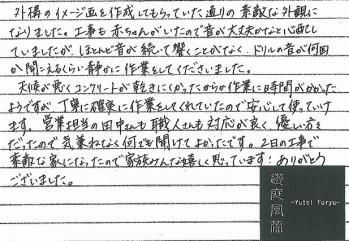 外構のイメージ画を作成してもらっていた通りの素敵な外観に
なりました。工事も赤ちゃんがいたので音が大丈夫かなと心配し
ていましたが、ほとんど音が続いて響くことがなく、ドリルの音が何回
か聞こえるくらい静かに作業をしてくださいました。
天候が悪くコンクリートが乾きにくかったからか作業に時間がかかった
ようですが、丁寧に確実に作業をしてくれていたので安心して使ってい
ます。営業担当の田中さんも職人さんも対応が良く、優しい方々
だったので気兼ねなく何でも聞けてよかったです。2日の工事で
素敵な家になったので家族みんな嬉しく思っています！ありがとう
ございました。
遊庭風流
-Yutei Furyu-